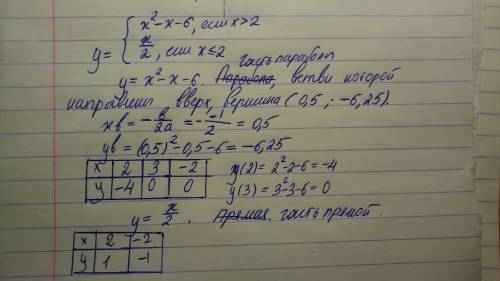 y = { x² - x - 6, если x > 2
x/2, если x ≤ 2
часть параболы
y = x² - x - 6. Парабола, ветви которой
направлены вверх, вершина (0,5 ; -6,25).
xв = -в/2a = -(-1)/2 = 0,5
yв = (0,5)² - 0,5 - 6 = -6,25
x | 2 | 3 | -2 y(2) = 2² - 2 - 6 = -4
y | -4 | 0 | 0 y(3) = 3² - 3 - 6 = 0
y = x/2. Прямая. часть прямой.
x | 2 | -2
y | 1 | -1